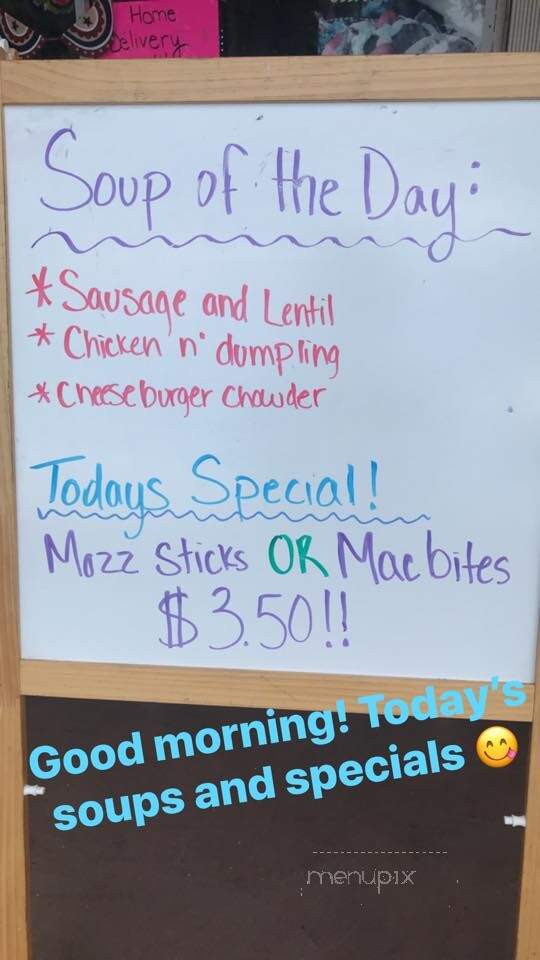 Home
Delivery
Soup of the Day:
* Sausage and Lentil
* Chicken n' dumpling
* Cheeseburger chowder
Todays Special!
Mozz Sticks OR Mac bites
$3.50!!
Good morning! Today's
soups and specials 😋
menupix